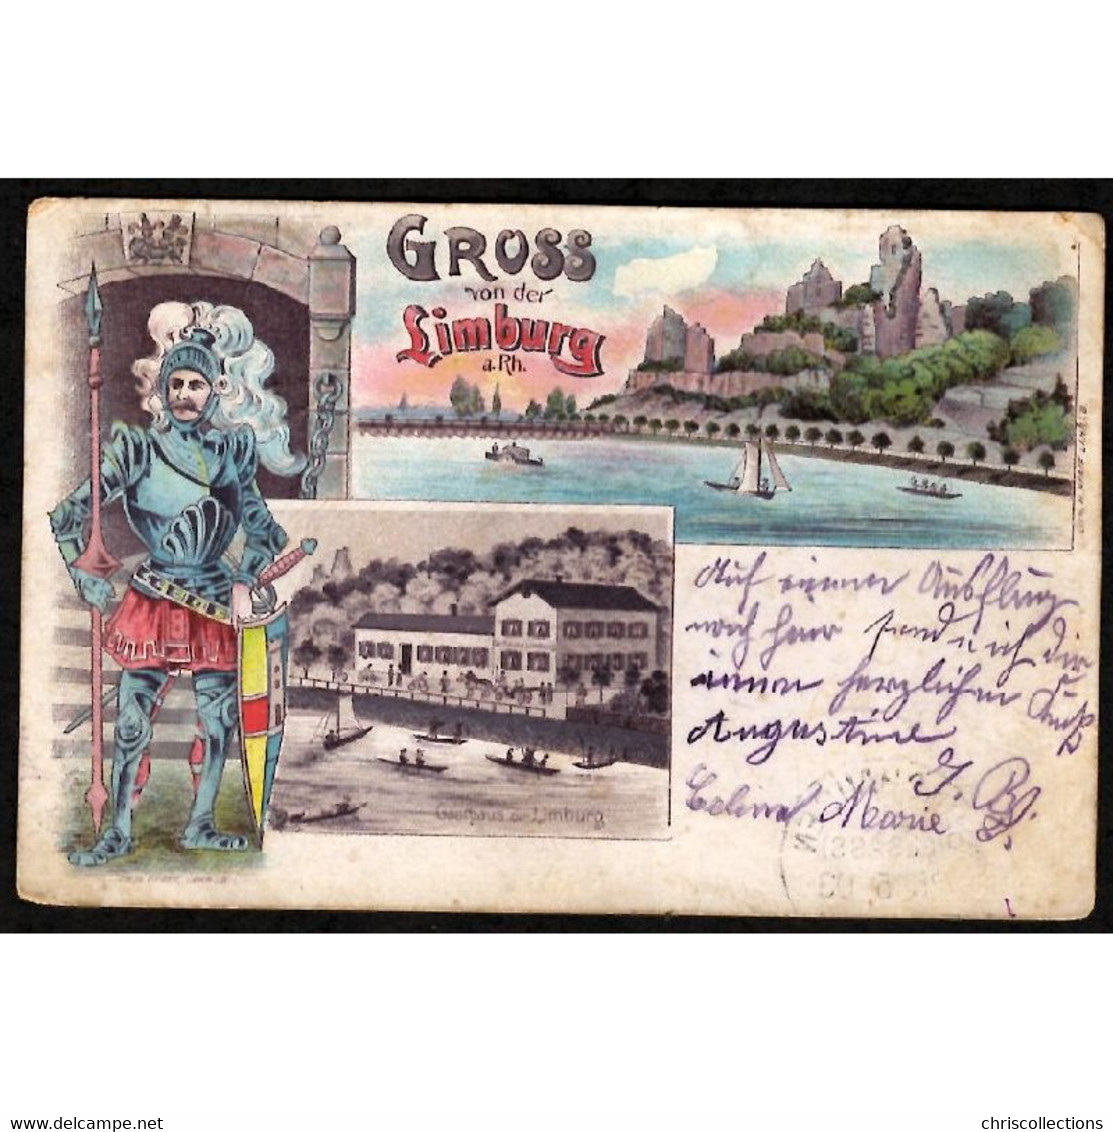 GROSS
von der
Limburg
a. Rh.
Gasthaus zur Limburg
Auf einem Ausflug
nach hier sende ich Dir
einen herzlichen Kuß
Augustine
J. B.
Marie
delcampe.net
chriscollections